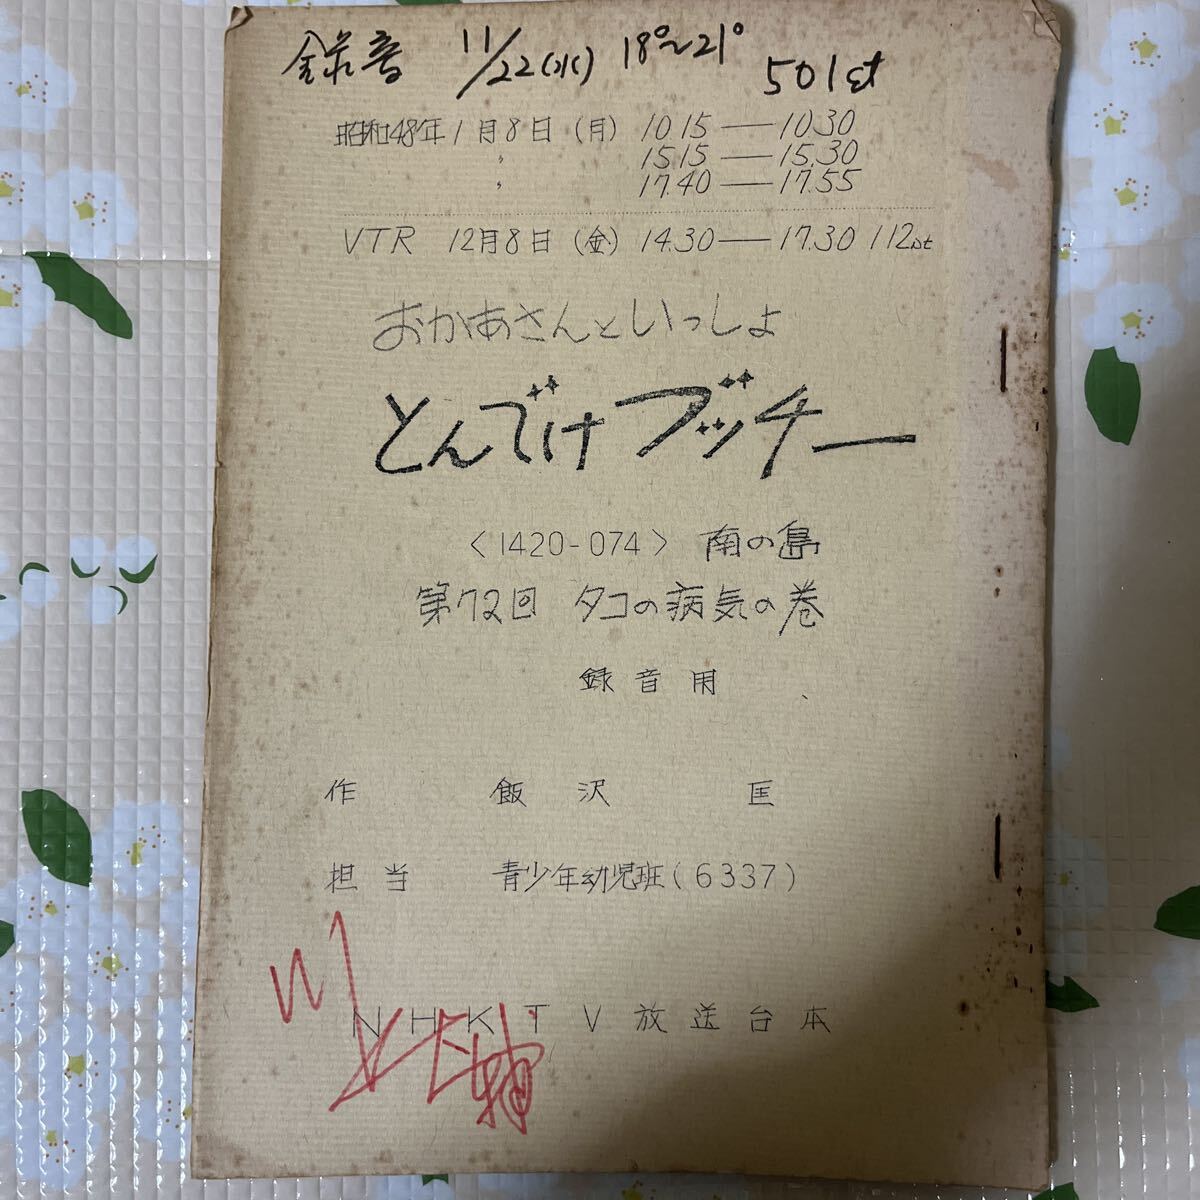 録音 11/22(水) 18°～21° 501st
昭和48年1月8日(月) 10.15―10.30
〃 15.15―15.30
〃 17.40―17.55
VTR 12月8日(金) 14.30―17.30 112st
おかあさんといっしょ
とんでけブッチー
<1420-074> 南の島
第72回 タコの病気の巻
録音用
作 飯沢 匡
担当 青少年幼児班(6337)
NHKTV放送台本